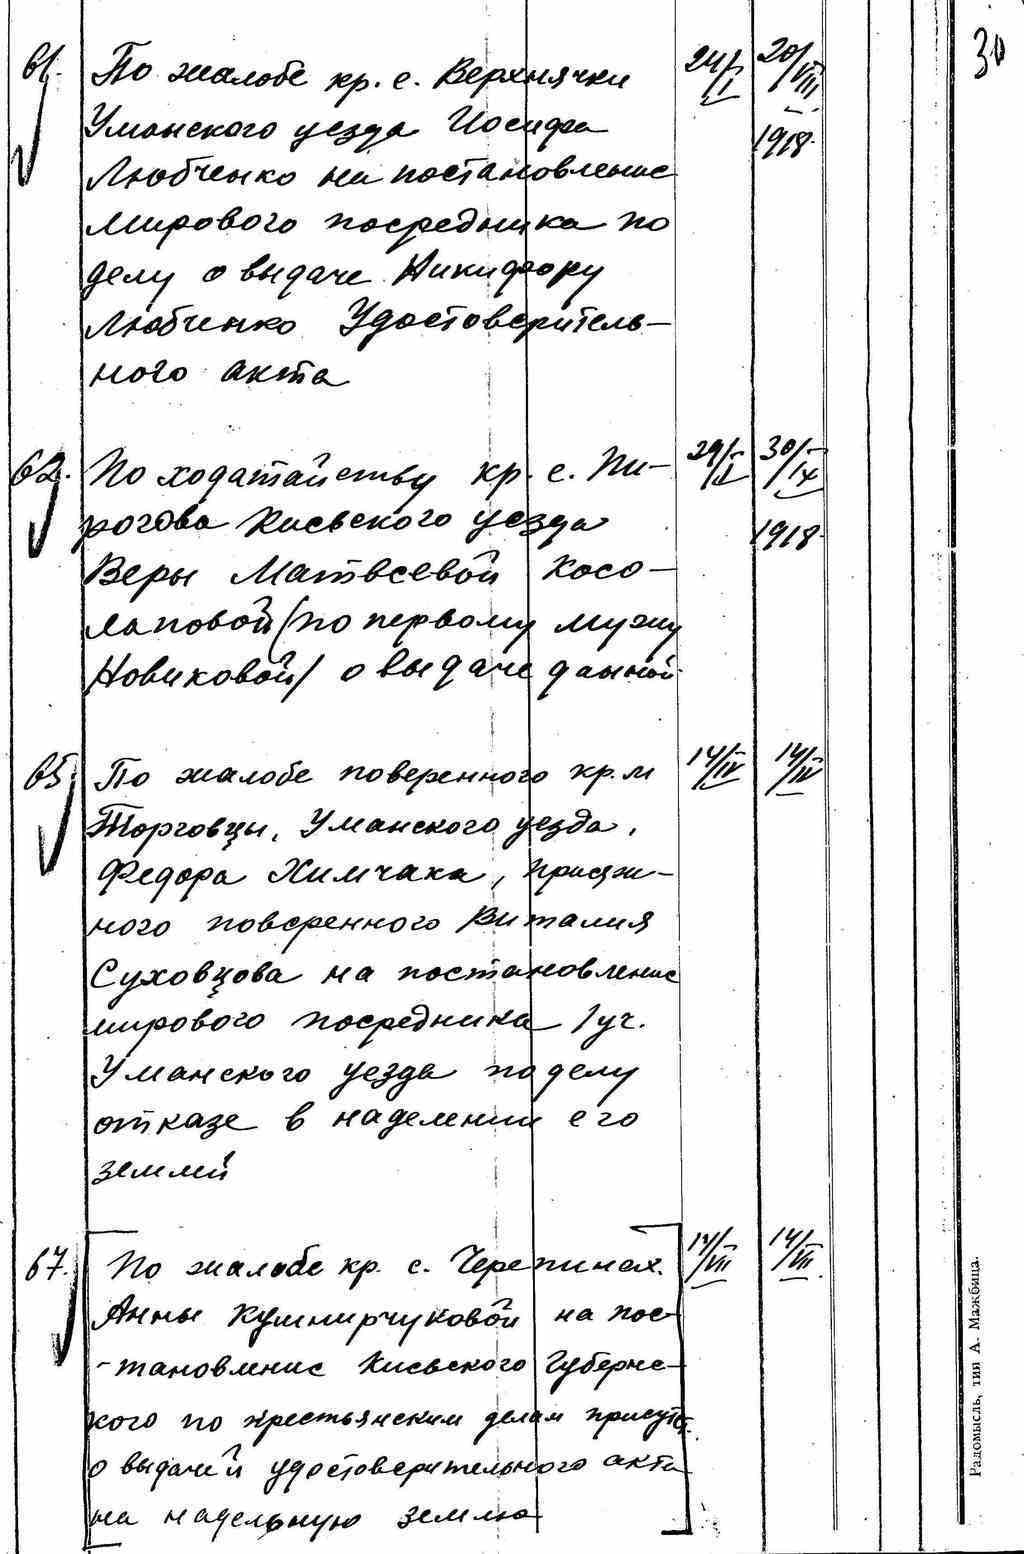 30
61. По жалобе кр. с. Верхнячки 24/I 20/VIII
Уманского уезда Иосифа 1918
Любченко на постановление
мирового посредника по
делу о выдаче Никифору
Любченко Удостоверитель-
ного акта
62. По ходатайству кр. с. Пи- 29/I 30/IX
рогова Киевского уезда 1918
Веры Матвеевой Косо-
лаповой (по первому мужу
Новиковой) о выдаче данной
65. По жалобе поверенного кр. м 14/IV 14/IV
Торговцы, Уманского уезда,
Федора Химчака, присяж-
ного поверенного Виталия
Суховцова на постановление
мирового посредника 1 уч.
Уманского уезда по делу
отказе в наделении его
землей
67. По жалобе кр. с. Черепинск. 14/VII 14/VII
Анны Кушнирчуковой на пос-
-тановление Киевского Губернс-
кого по крестьянским делам присутст.
о выдаче й удостоверительного акта
на надельную землю
Радомысль, тип А. Мажбица.